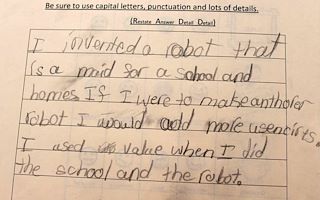 Be sure to use capital letters, punctuation and lots of details.
(Restate Answer Detail Detail)
I invented a robot that
is a maid for a school and
homes If I were to make anthoer
robot I would add more
I used value when I did
the school and the robot.